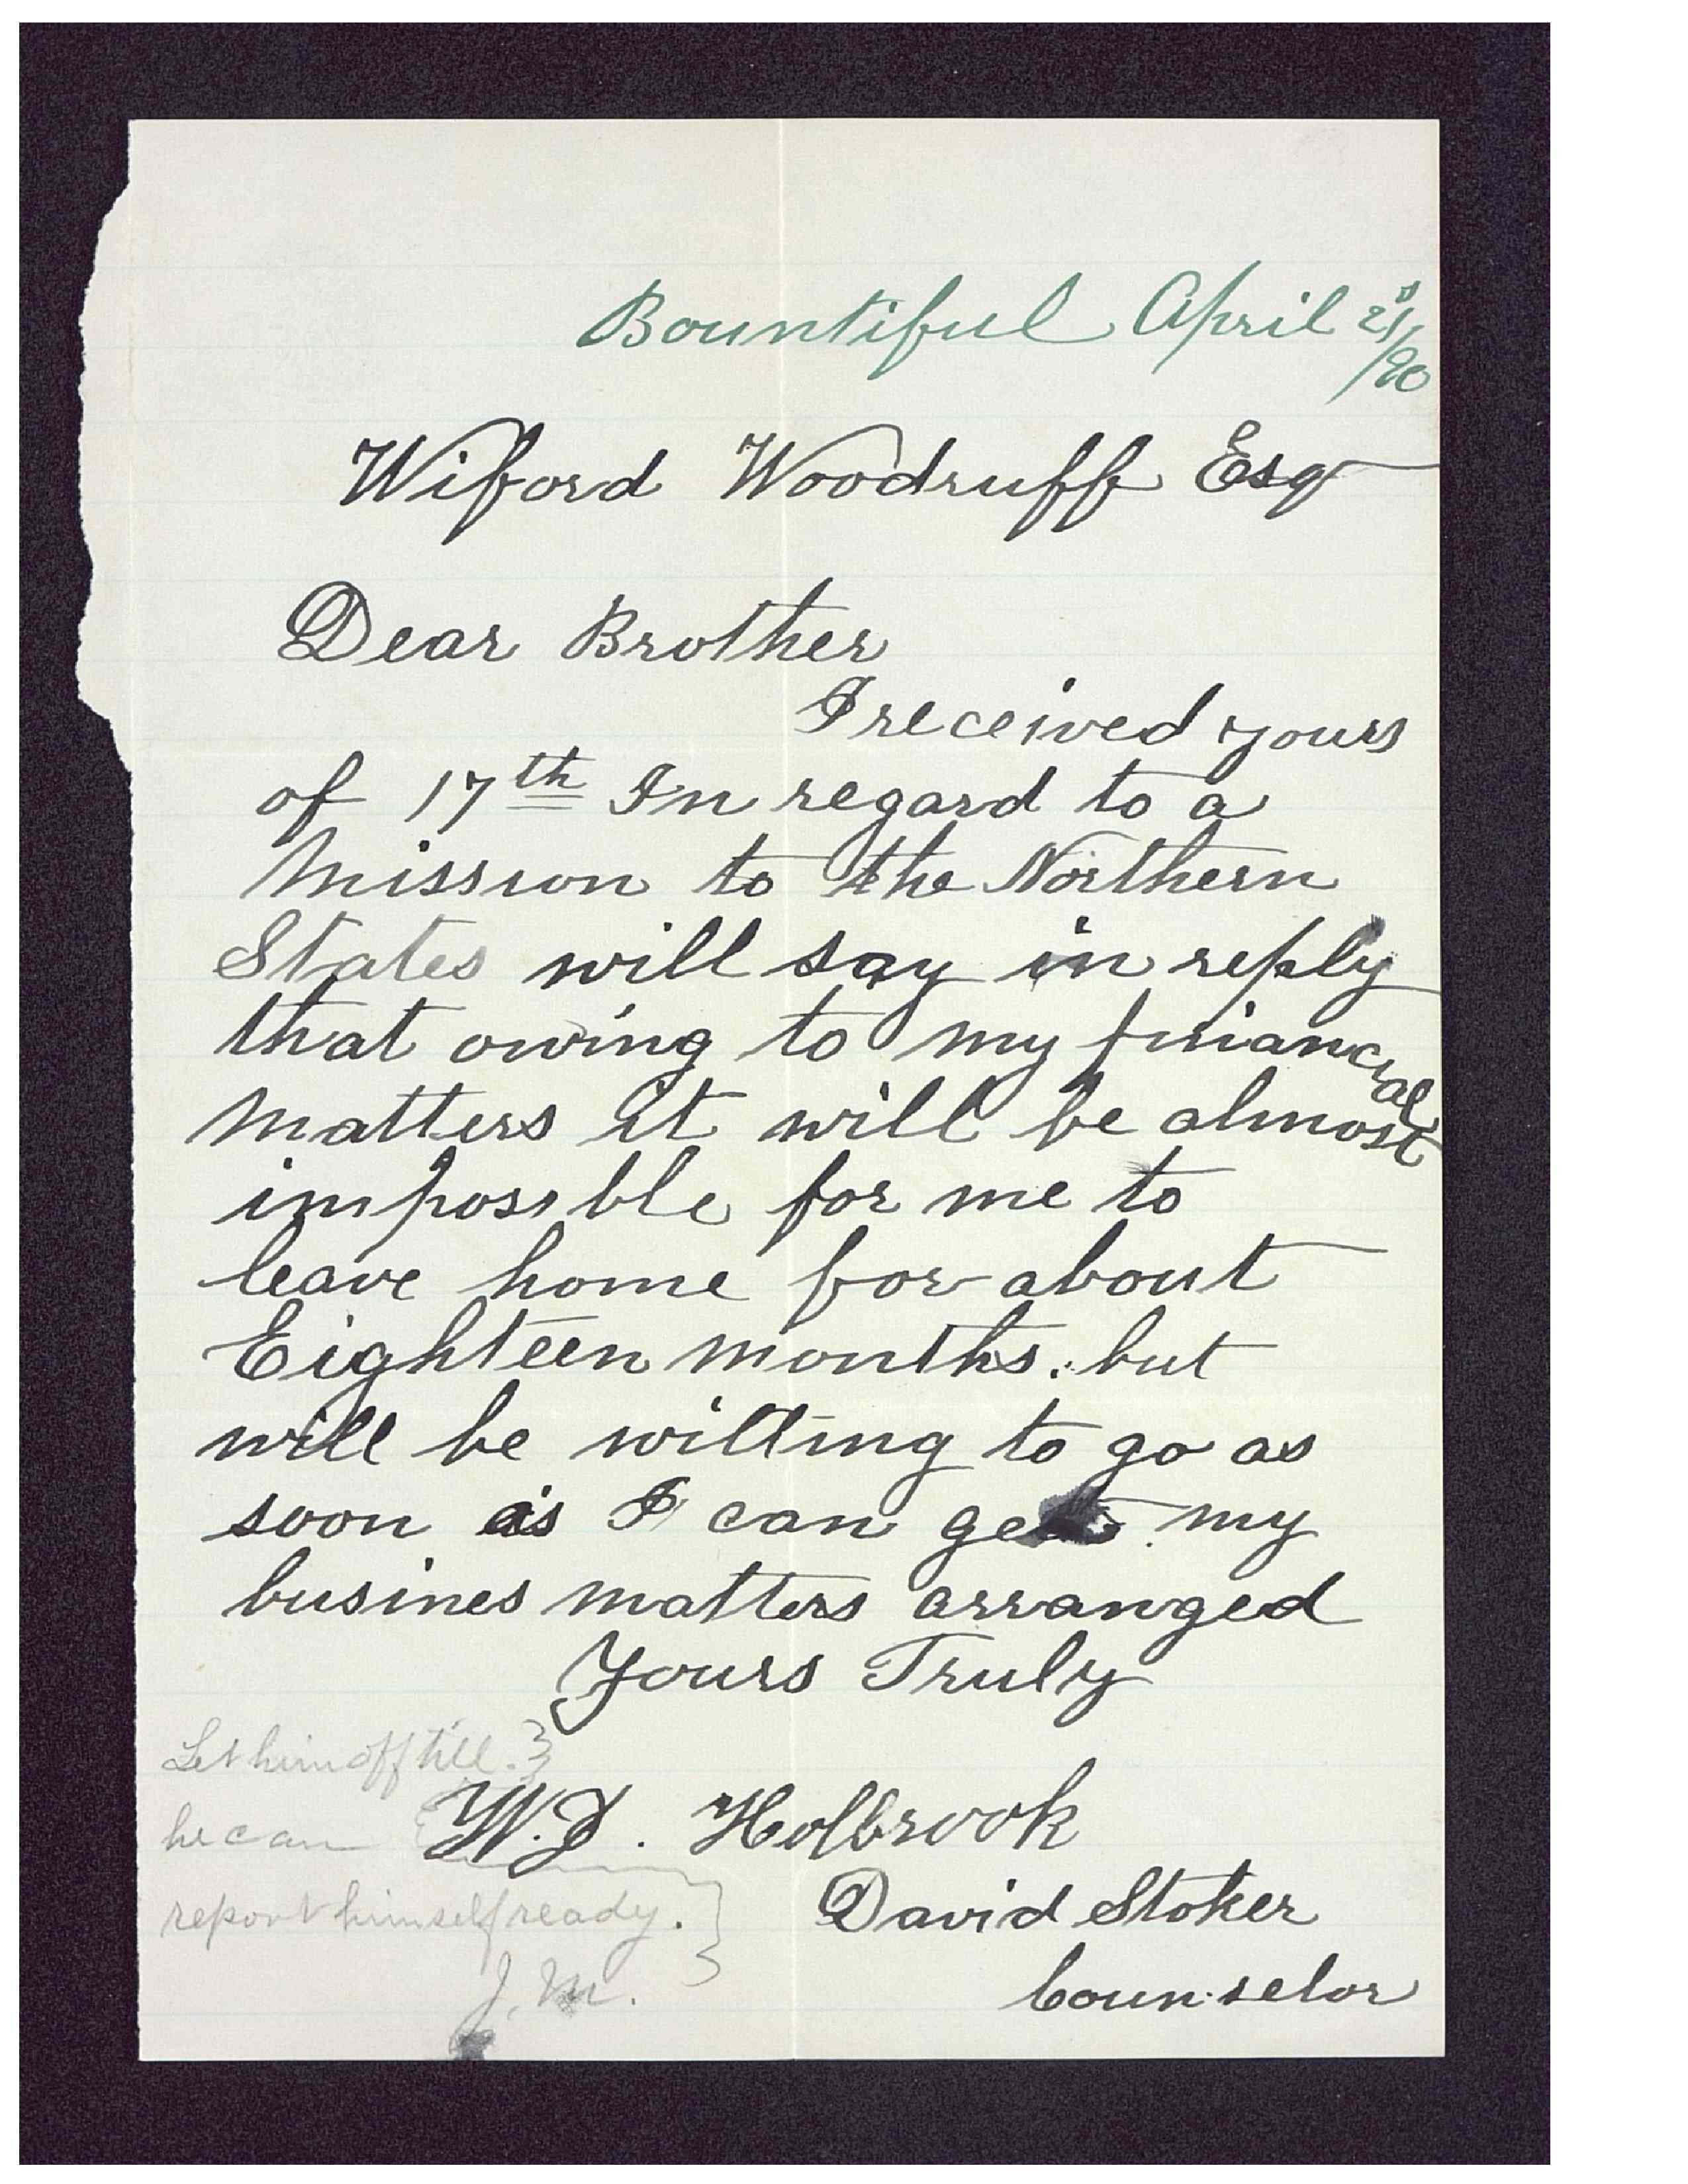 Bountiful April 21s
/90
Wiford Woodruff Esq
Dear Brother
I received yours
of 17th In regard to a
Mission to the Northern
States will say in reply
that owing to my financial
matters it will be almost
impossible for me to
leave home for about
Eighteen months. but
will be willing to go as
soon as I can get my
busines matters arranged
Yours Truly
Let him off till
he can
W.D. Holbrook
report himself ready.
J. M.
David Stoker
Counselor